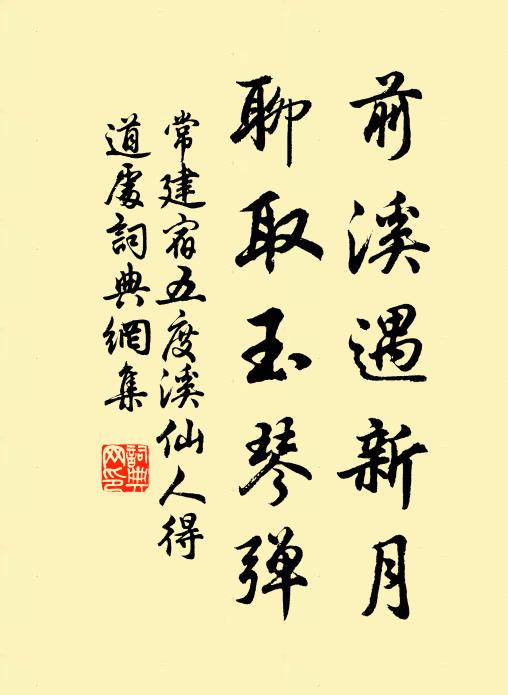 前溪遇新月
聊取玉琴弹
常建宿五度溪仙人得
道處詞典網集
詞典网印